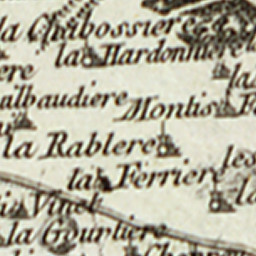 la Chibossiere
la Hardonniere
ere
la
ulbaudiere Montis
la Rablere
les
la Ferriere
la
Vinet
la Gourliere